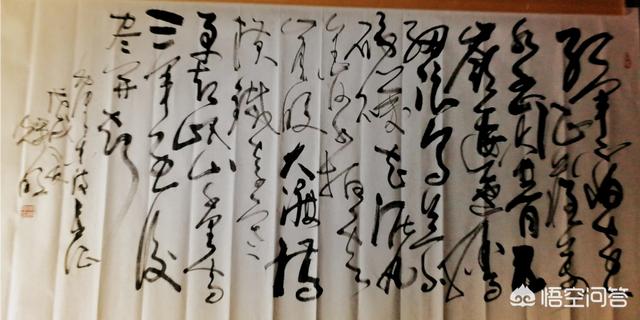 红軍不怕远
征难萬
水千山只等闲五
岭逶迤腾
细浪乌蒙
磅礴走泥丸
金沙水拍云
崖暖大渡橋
横铁索寒
更喜岷山千里雪
三軍过後
尽开颜
毛泽东诗長征
悟空问答